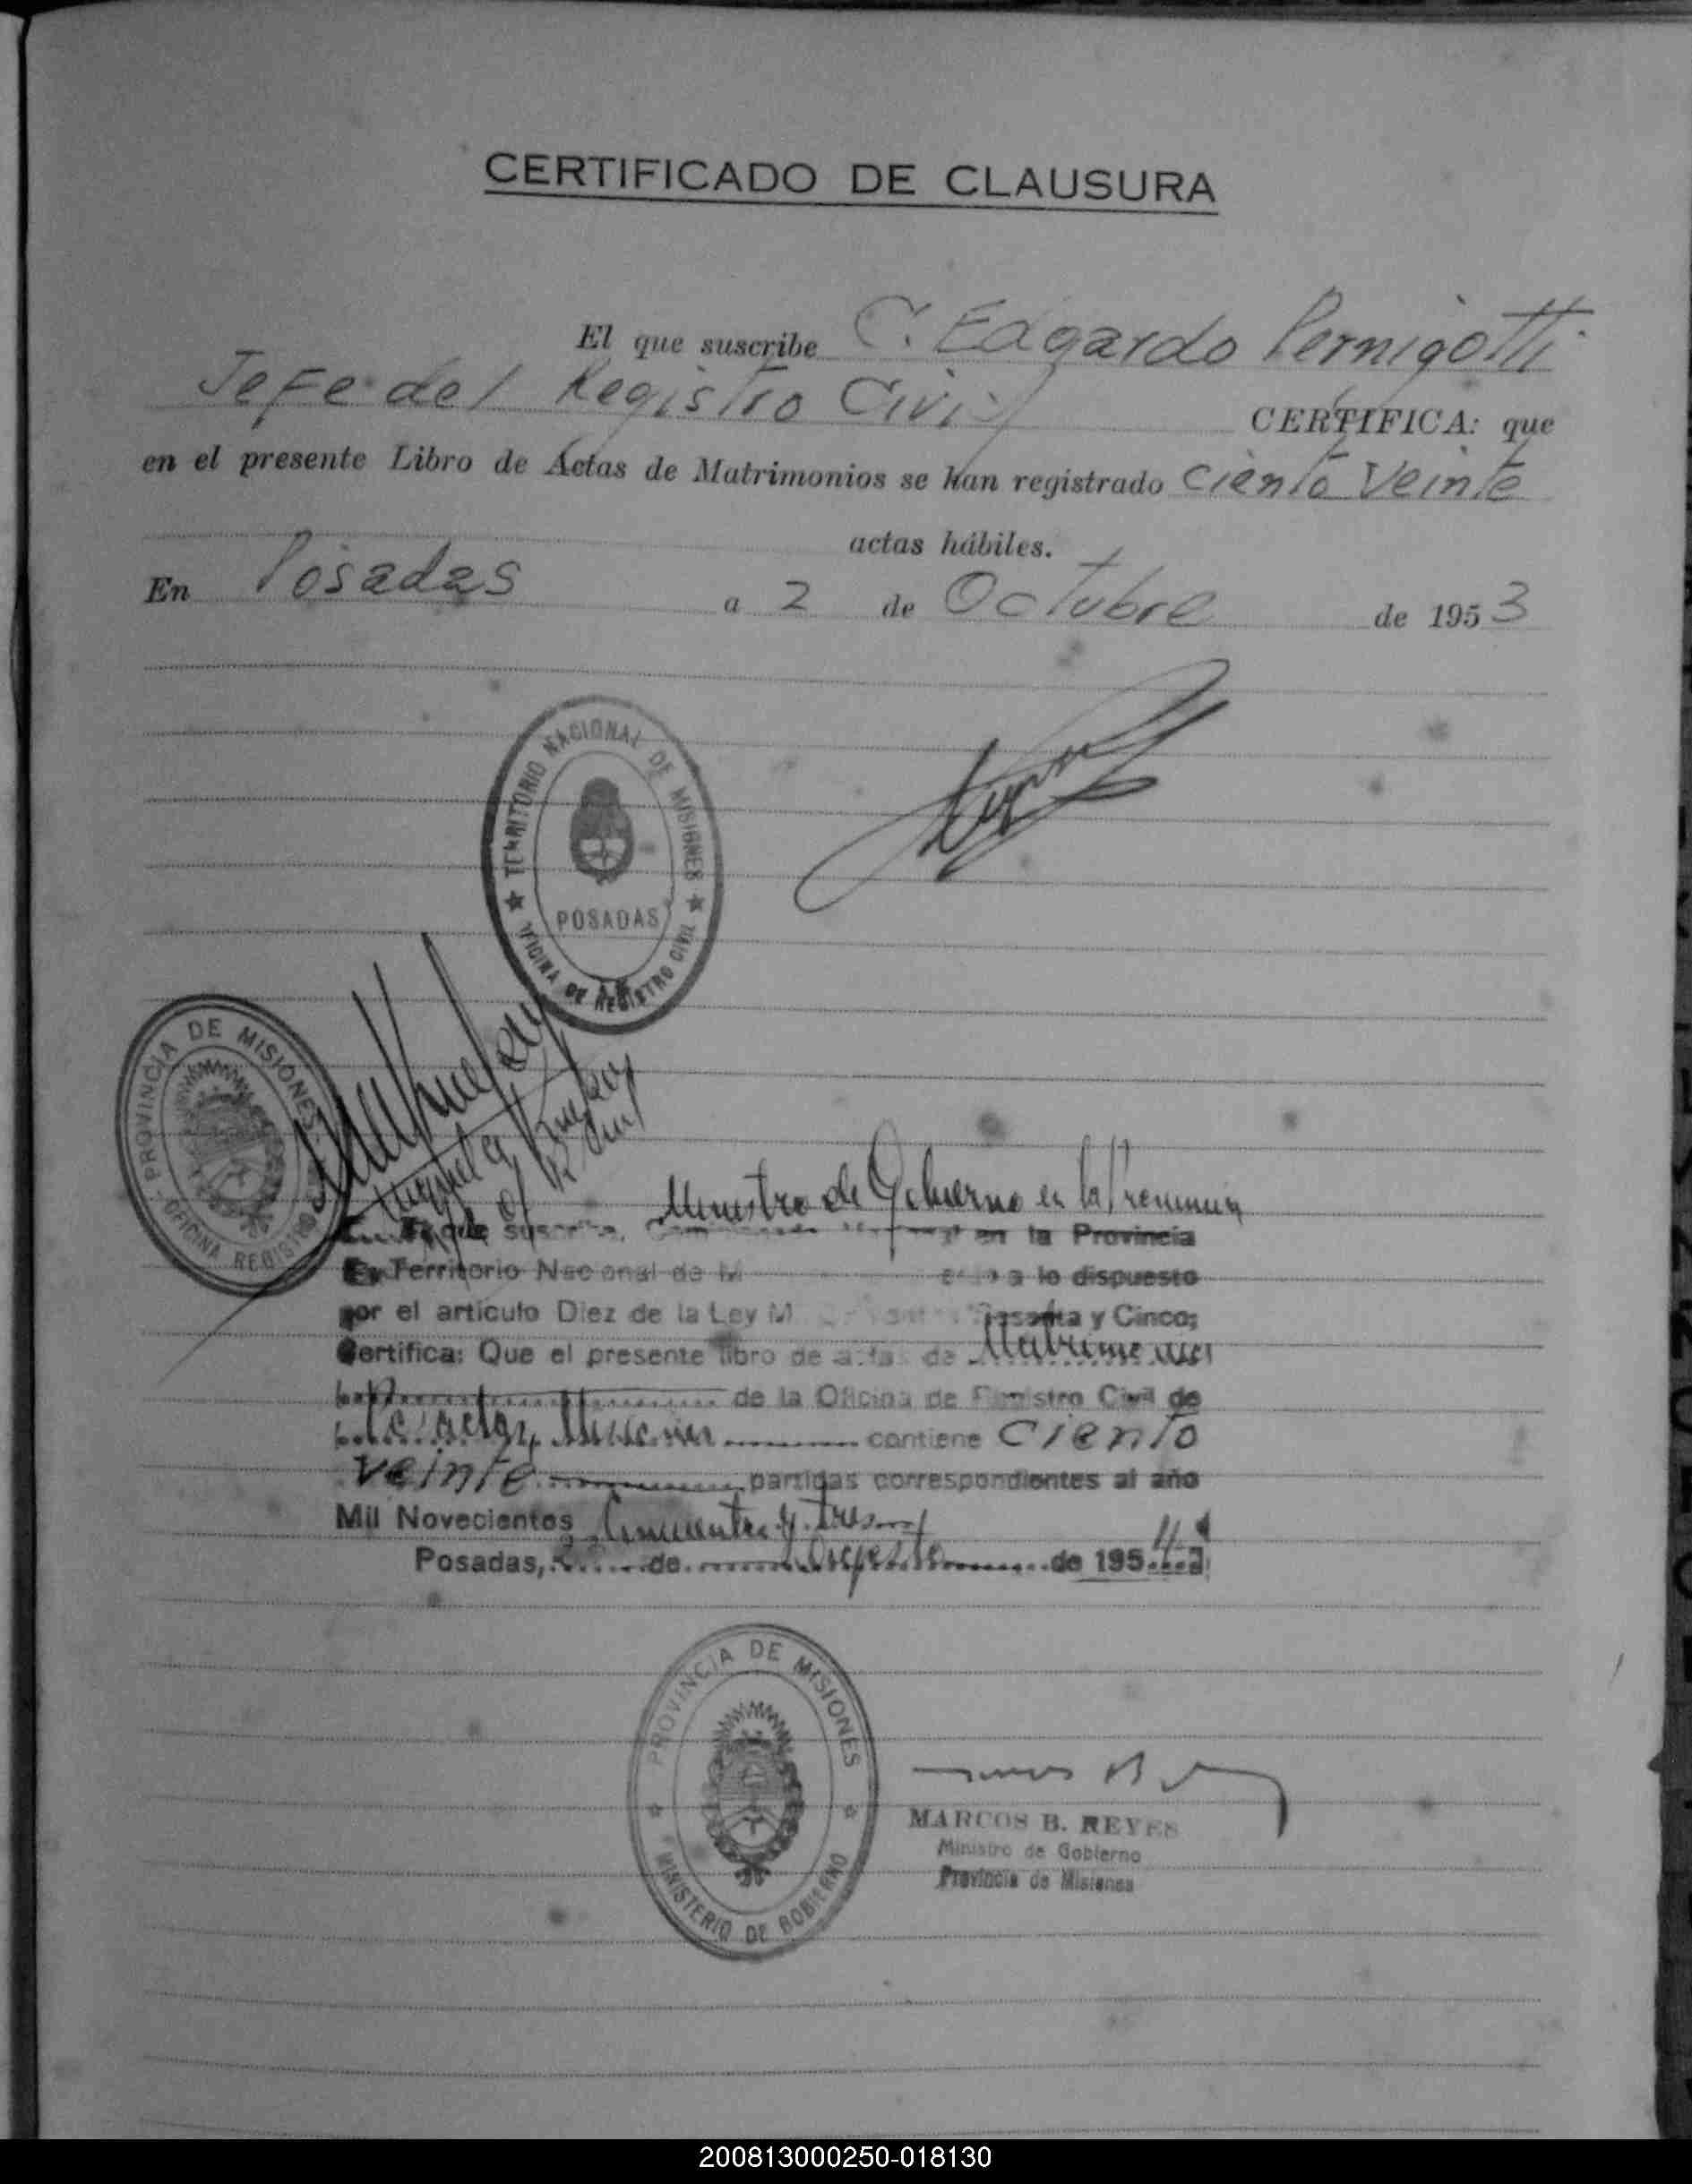 CERTIFICADO DE CLAUSURA
El que suscribe C. Edgardo Pernigotti
Jefe del Registro Civil CERTIFICA: que
en el presente Libro de Actas de Matrimonios se han registrado ciento veinte
actas hábiles.
En Posadas a 2 de Octubre de 1953
TERRITORIO NACIONAL DE MISIONES
POSADAS
OFICINA DE REGISTRO CIVIL
PROVINCIA DE MISIONES
OFICINA REGISTRO
Ministro de Gobierno en la Provincia
que en la Provincia
Ex Territorio Nacional de a lo dispuesto
por el artículo Diez de la Ley y Cinco;
Certifica: Que el presente libro de actas de Matrimonios
de la Oficina de Registro Civil de
Posadas, Misiones contiene Ciento
veinte partidas correspondientes al año
Mil Novecientos Cincuenta y tres
Posadas, de Agosto de 1954
PROVINCIA DE MISIONES
MINISTERIO DE GOBIERNO
MARCOS B. REYES
Ministro de Gobierno
Provincia de Misiones
200813000250-018130